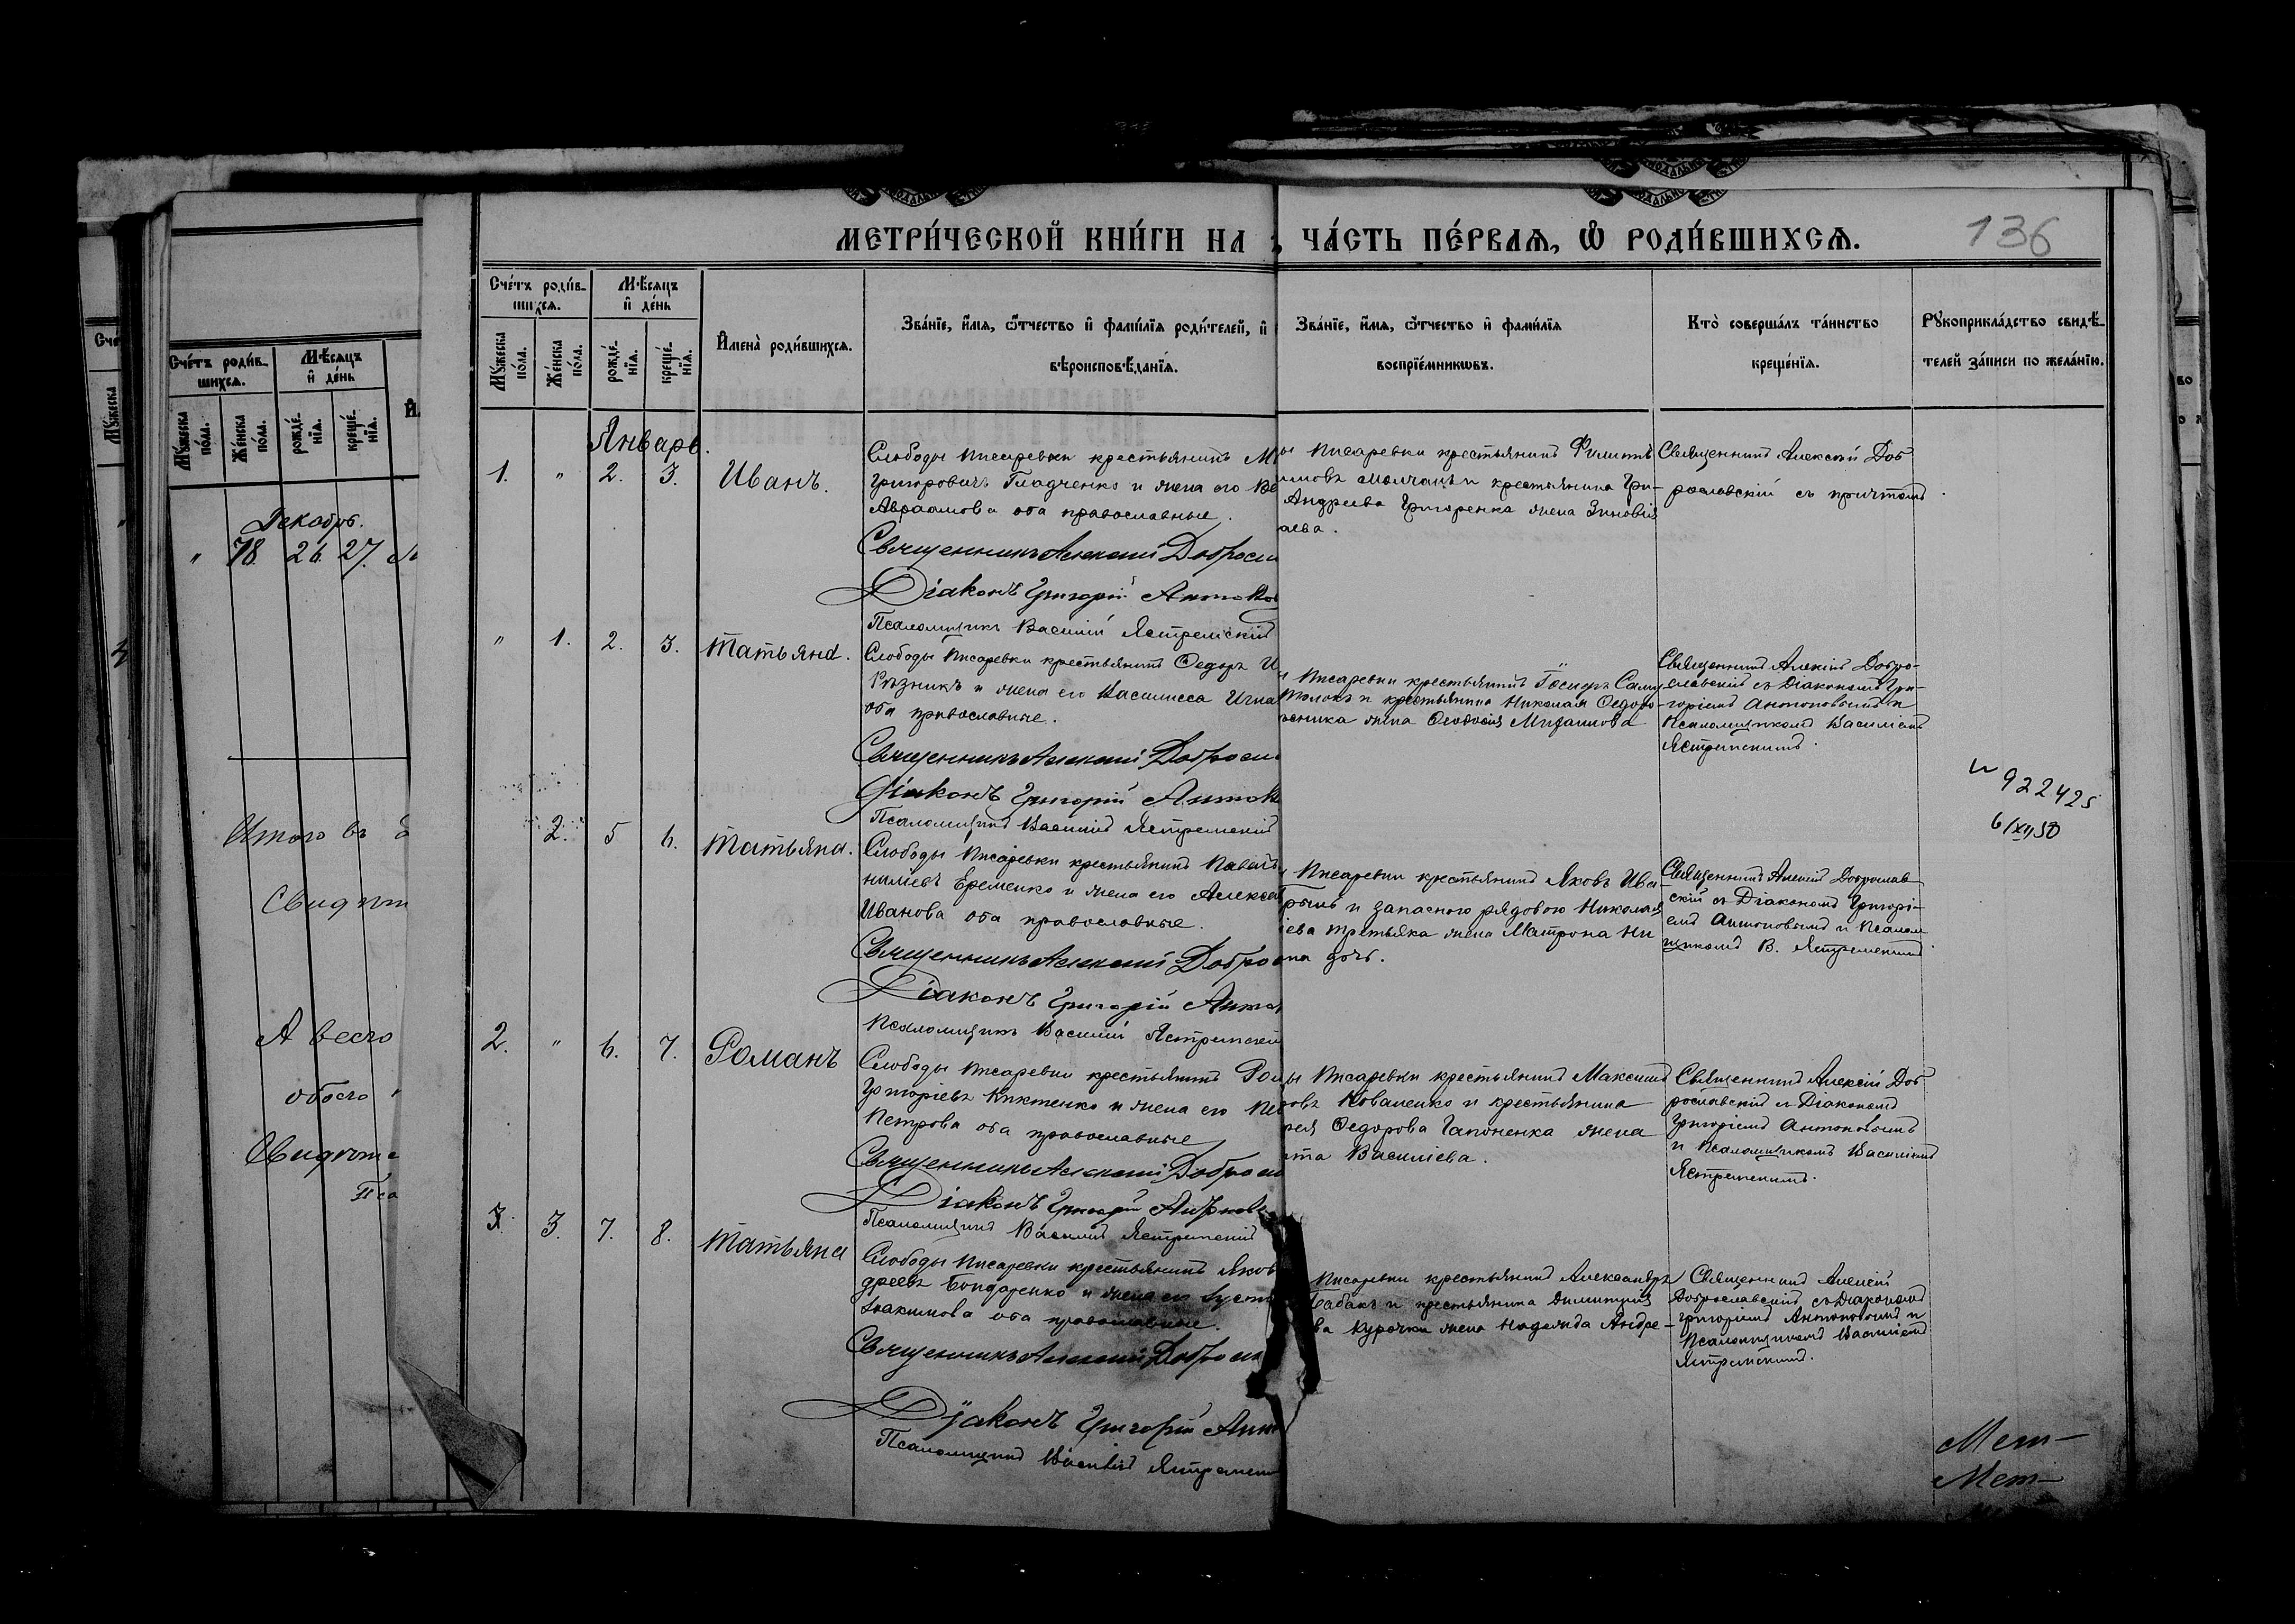 МЕТРИ́ЧЕСКОЙ КНИ́ГИ НА
ЧА́СТЬ ПЕ́РВАЯ, Ѿ РОДИ́ВШИХСЯ.
136
Сче́тъ роди́в-
шихся.
Мѣсяцъ
и҆ де́нь
Мꙋ́жеска
по́ла.
Же́нска
по́ла.
рожде́-
нїя.
креще́-
нїя.
Декабрь.
" 78. 26. 27.
Итого въ
А всего
обоего
Сче́тъ роди́в-
шихся.
Мѣсяцъ
и҆ де́нь
Мꙋ́жеска
по́ла.
Же́нска
по́ла.
рожде́-
нїя.
креще́-
нїя.
И҆мена̀ роди́вшихся.
Зва́нїе, и҆́мя, ѻ҆́тчество и҆ фами́лїя роди́телей, и҆
вѣроисповѣ́данїя.
Зва́нїе, и҆́мя, ѻ҆́тчество и҆ фами́лїя
воспрїе́мникѡвъ.
Кто̀ соверша́лъ та́инство
креще́нїя.
Рꙋкоприкла́дство свидѣ́-
телей за́писи по жела́нїю.
Январь.
1. " 2. 3. Иванъ.
Слободы Писаревки крестьянинъ М
Григоровичъ Гладченко и жена его Ве
Авраамова оба православные.
Священникъ Алексій Доброслав
Діаконъ Григорій Антонов
Псаломщикъ Василій Ястремскій
ы Писаревки крестьянинъ Филиппъ
имовъ Молчанъ и крестьянина Гри-
Андреева Григоренка жена Зиновія
аева.
Священникъ Алексій Доб-
рославскій съ причтомъ.
" 1. 2. 3. Татьяна.
Слободы Писаревки крестьянинъ Ѳедоръ И
Рѣзникъ и жена его Василисса Игна
оба православные.
Священникъ Алексій Доброслав
Діаконъ Григорій Антонов
Псаломщикъ Василій Ястремскій
Писаревки крестьянинъ Іосифъ Саму-
Толокъ и крестьянина Николая Ѳедоро-
жена Ѳеодосія Митрофанова
Священникъ Алексій Добро-
славскій съ Діакономъ Гри-
горіемъ Антоновымъ и
Псаломщикомъ Василіемъ
Ястремскимъ.
922425
6/XII 50
2. 5 6. Татьяна.
Слободы Писаревки крестьянинъ Павелъ
Еременко и жена его Алекса
Иванова оба православные.
Священникъ Алексій Добросл
Діаконъ Григорій Антон
Псаломщикъ Василій Ястремскій
Писаревки крестьянинъ Яковъ Ива-
и запасного рядового Николая
ева Третьяка жена Матрона Ни
на дочь.
Священникъ Алексій Доброслав-
скій съ Діакономъ Григорі-
емъ Антоновымъ и Псалом-
щикомъ В. Ястремскимъ.
2. " 6. 7. Романъ
Слободы Писаревки крестьянинъ Ром
Григоріевъ Никтенко и жена его Пел
Петрова оба православные
Священникъ Алексій Доброслав
Діаконъ Григорій Антонов
Псаломщикъ Василій Ястремскій
ы Писаревки крестьянинъ Максимъ
ровъ Коваленко и крестьянина
рея Ѳедорова Гапоненка жена
та Василіева.
Священникъ Алексій Доб-
рославскій съ Діакономъ
Григоріемъ Антоновымъ
и Псаломщикомъ Василіемъ
Ястремскимъ.
3. 3. 7. 8. Татьяна
Слободы Писаревки крестьянинъ Яков
дреевъ Бондаренко и жена его Іуст
Іоакимова оба православные.
Священникъ Алексій Доброслав
Діаконъ Григорій Анто
Псаломщикъ Василій Ястремскій
Писаревки крестьянинъ Александръ
Бабакъ и крестьянина Димитрія
ва Курочки жена Надежда Андре-
Священникъ Алексій
Доброславскій съ Діакономъ
Григоріемъ Антоновымъ и
Псаломщикомъ Василіемъ
Ястремскимъ.
Мет-
Мет-